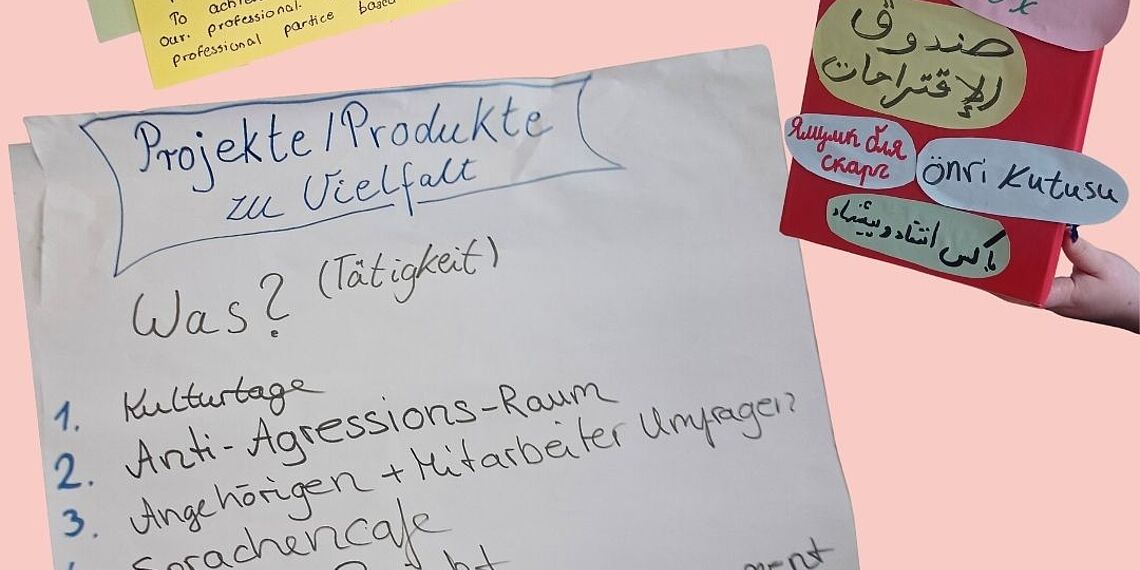 To
our professional.
professional partice based
Projekte/Produkte
zu Vielfalt
Was? (Tätigkeit)
1. Kulturtage
2. Anti-Agressions-Raum
3. Angehörigen + Mitarbeiter Umfragen?
Sprachencafe
x
صندوق
الإقتراحات
Ямулк для
скарг
önri Kutusu
باكس